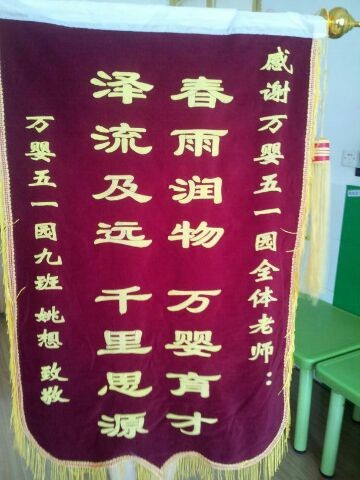 感谢万婴五一园全体老师：
春雨润物 万婴育才
泽流及远 千里思源
万婴五一园九班 姚想 致敬